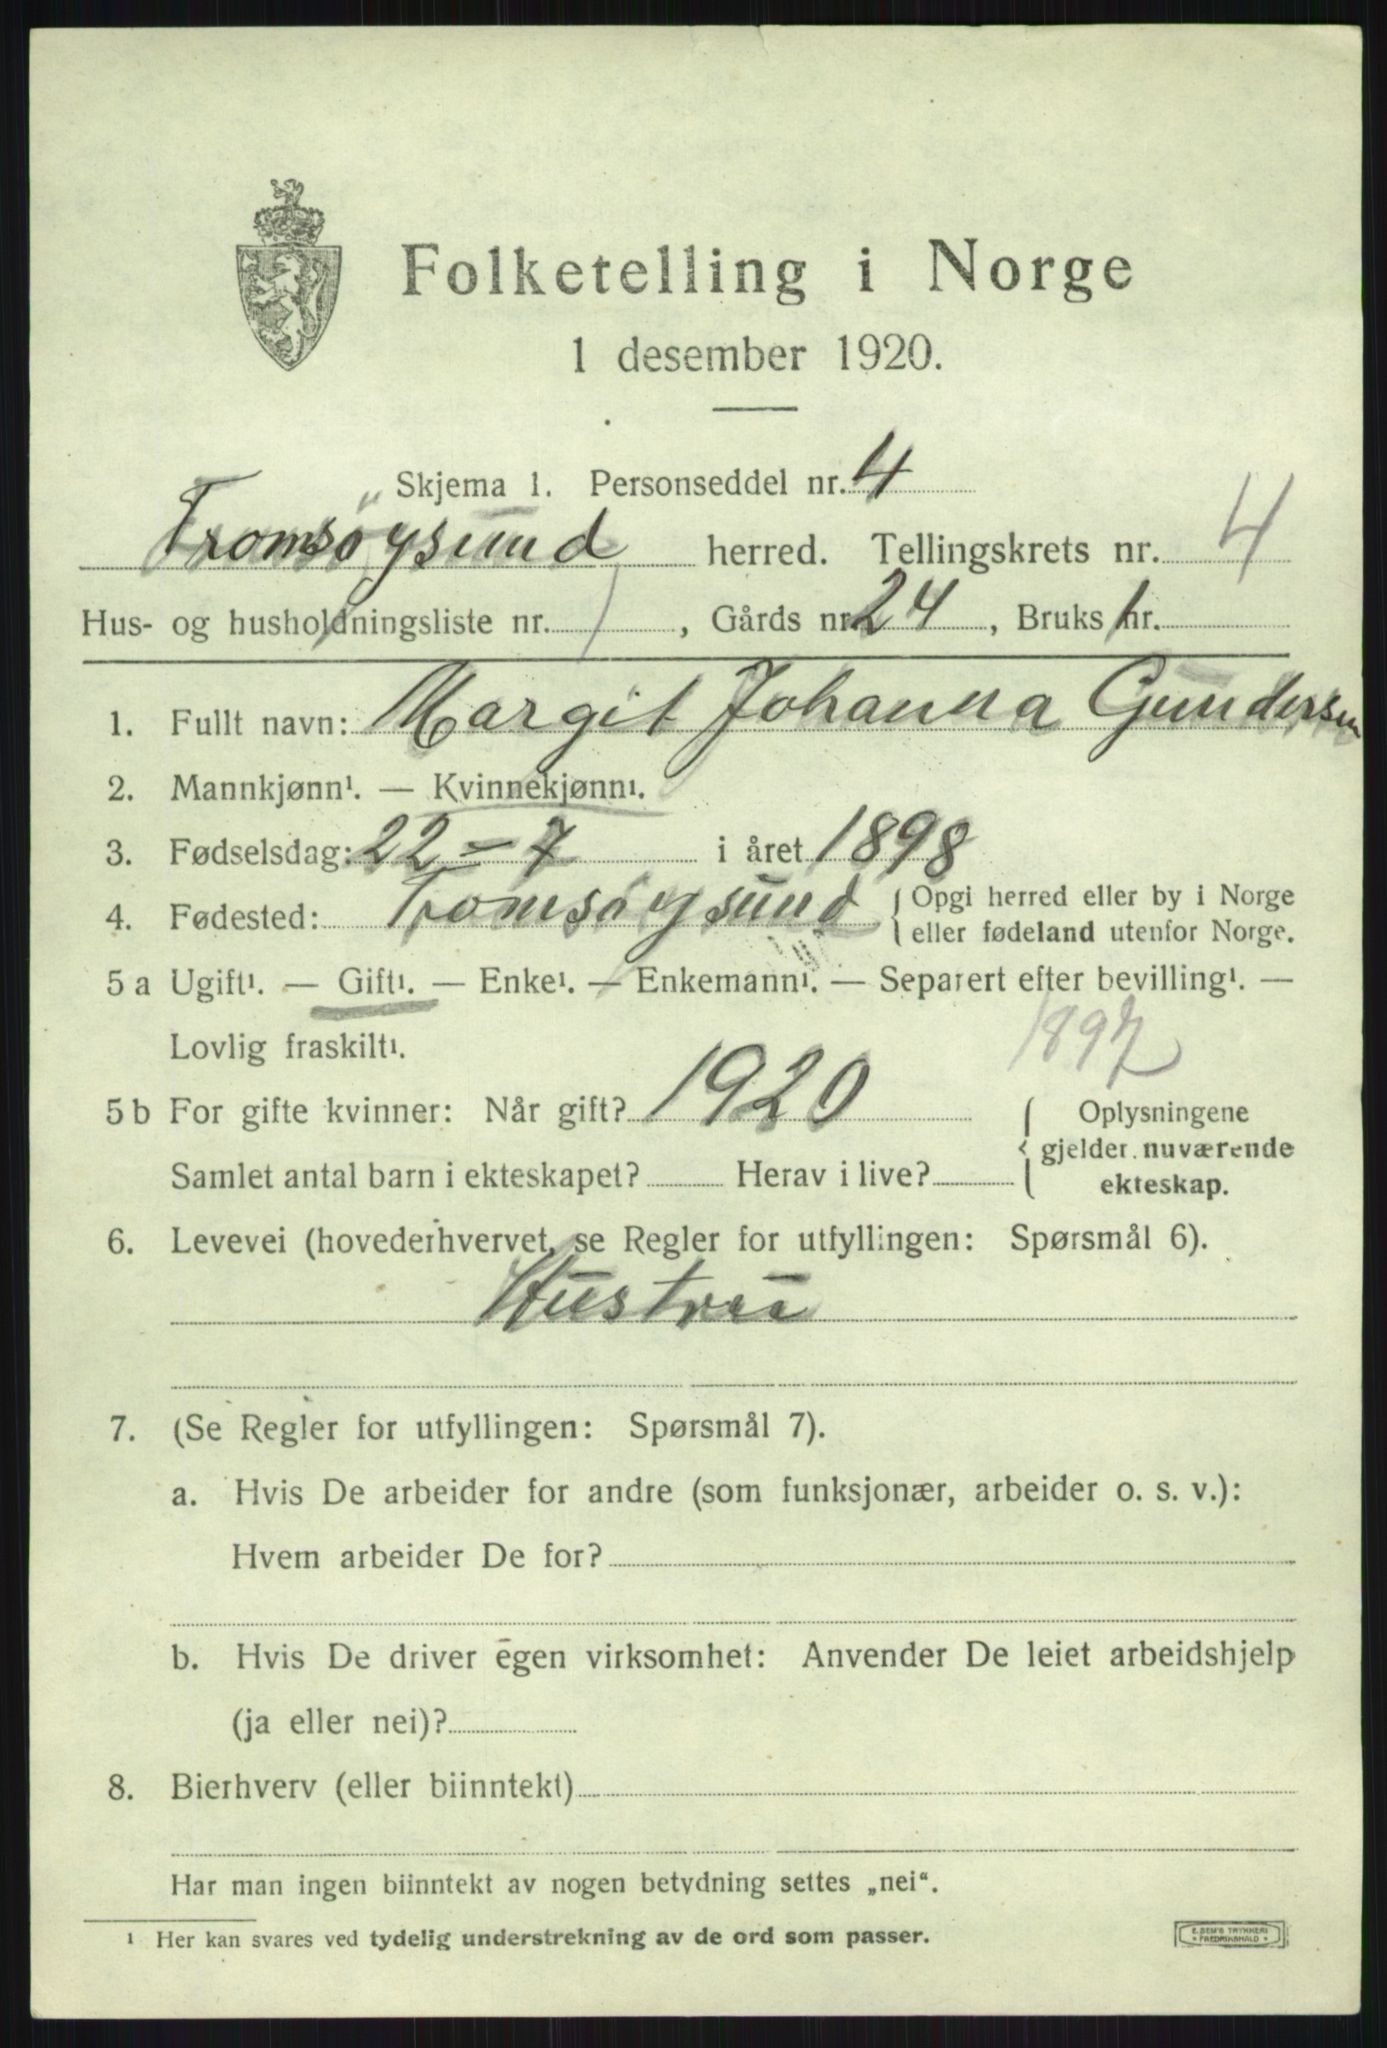 Folketelling i Norge
1 desember 1920.
Skjema 1. Personseddel nr. 4
Tromsøysund herred. Tellingskrets nr. 4
Hus- og husholdningsliste nr. 1, Gårds nr. 24, Bruks nr. 1
1. Fullt navn: Margit Johanna Gundersen
2. Mannkjønn¹. — Kvinnekjønn¹.
3. Fødselsdag: 22 - 7 i året 1898
4. Fødested: Tromsøysund { Opgi herred eller by i Norge
eller fødeland utenfor Norge.
5 a Ugift¹. — Gift¹. — Enke¹. — Enkemann¹. — Separert efter bevilling¹. —
Lovlig fraskilt¹. 1897
5 b For gifte kvinner: Når gift? 1920 { Oplysningene
gjelder nuværende
Samlet antal barn i ekteskapet? Herav i live? ekteskap.
6. Levevei (hovederhvervet, se Regler for utfyllingen: Spørsmål 6).
Hustru
7. (Se Regler for utfyllingen: Spørsmål 7).
a. Hvis De arbeider for andre (som funksjonær, arbeider o. s. v.):
Hvem arbeider De for?
b. Hvis De driver egen virksomhet: Anvender De leiet arbeidshjelp
(ja eller nei)?
8. Bierhverv (eller biinntekt)
Har man ingen biinntekt av nogen betydning settes „nei“.
¹ Her kan svares ved tydelig understrekning av de ord som passer.
E. SEM'S TRYKKERI
FREDRIKSHALD